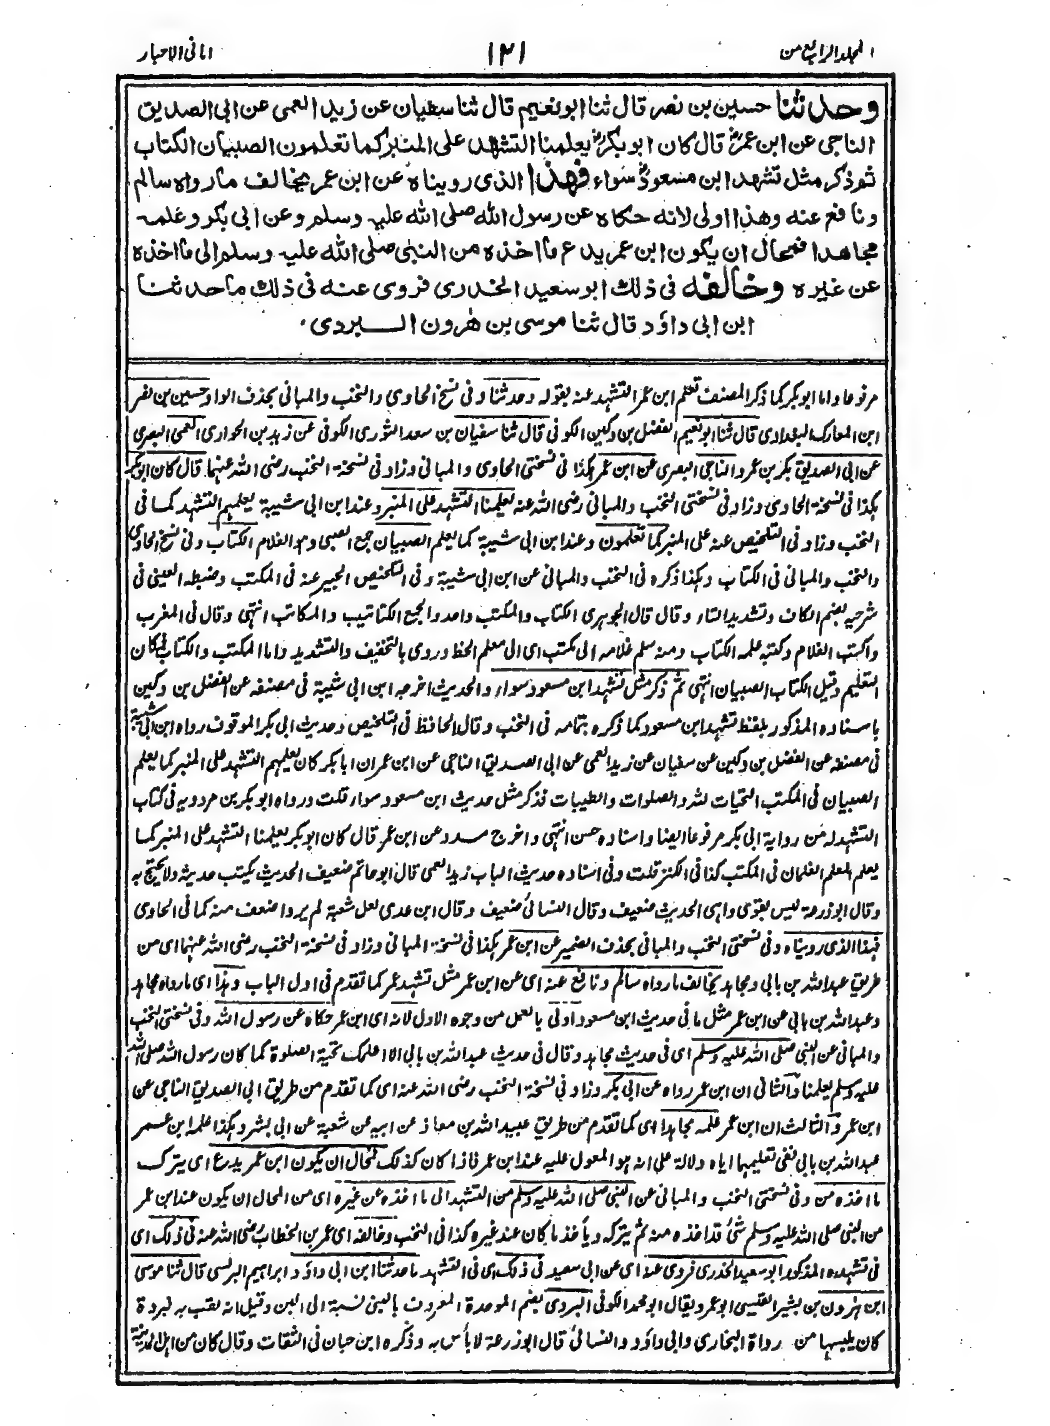 المجلد الرابع من
١٢١
امانی الاحبار
وحدثنا حسين بن نصر قال ثنا ابو نعيم قال ثنا سفيان عن زيد العمى عن ابى الصديق
الناجى عن ابن عمرؓ قال كان ابو بكرؓ يعلمنا التشهد على المنبر كما تعلمون الصبيان الكتاب
ثم ذكر مثل تشهد ابن مسعودؓ سواء فهذا الذى رويناه عن ابن عمر يخالف ما رواه سالم
ونافع عنه وهذا اولى لانه حكاه عن رسول الله صلى الله عليه وسلم وعن ابى بكر وعلمه
مجاهدا فمحال ان يكون ابن عمر يدع ما اخذه من النبى صلى الله عليه وسلم الى ما اخذه
عن غيره وخالفه فى ذلك ابو سعيد الخدرى فروى عنه فى ذلك ما حدثنا
ابن ابى داؤد قال ثنا موسى بن هرون البردى.
مرفوعا واما ابو بكر كما ذكر المصنف تعلم ابن عمر التشهد عنه بقوله وحدثنا وفى نسخ الحاوى والنخب والمبانى بحذف الواو حسين بن نصر
ابن المعارك البغدادى قال ثنا ابو نعيم الفضل بن دكين الكوفى قال ثنا سفيان بن سعد الثورى الكوفى عن زيد بن الحوارى العمى البصرى
عن ابى الصديق بكر بن عمرو الناجى البصرى عن ابن عمر هكذا فى نسختى الحاوى والمبانى وزاد فى نسخة النخب رضى الله عنهما قال كان ابو بكر
هكذا فى نسخة الحاوى وزاد فى نسختى النخب والمبانى رضى الله عنه يعلمنا التشهد على المنبر وعند ابن ابى شيبة يعلمهم التشهد كما فى
النخب وزاد فى التلخيص عنه على المنبر كما تعلمون وعند ابن ابى شيبة كما يعلم الصبيان جمع الصبى وهو الغلام الكتاب وفى نسخ الحاوى
والنخب والمبانى فى الكتاب وهكذا ذكره فى النخب والمبانى عن ابن ابى شيبة وفى التلخيص الحبير عنه فى المكتب وضبطه العينى فى
شرحيه بضم الكاف وتشديد التاء وقال قال الجوهرى الكتاب والمكتب واحد والجمع الكتاتيب والمكاتب انتهى وقال فى المغرب
واكتب الغلام وكتبه علمه الكتاب ومنه سلم غلامه الى مكتب اى الى معلم الخط وروى بالتخفيف والتشديد واما المكتب والكتاب فمكان
التعليم وقيل الكتاب الصبيان انتهى ثم ذكر مثل تشهد ابن مسعود سواء والحديث اخرجه ابن ابى شيبة فى مصنفه عن الفضل بن دكين
باسناده المذكور بلفظ تشهد ابن مسعود كما ذكره بتمامه فى النخب وقال الحافظ فى التلخيص وحديث ابى بكر الموقوف رواه ابن ابى شيبة
فى مصنفه عن الفضل بن دكين عن سفيان عن زيد العمى عن ابى الصديق الناجى عن ابن عمر ان ابا بكر كان يعلمهم التشهد على المنبر كما يعلم
الصبيان فى المكتب التحيات لله والصلوات والطيبات فذكر مثل حديث ابن مسعود سواء قلت ورواه ابو بكر بن مردويه فى كتاب
التشهد له من رواية ابى بكر مرفوعا ايضا واسناده حسن انتهى واخرج مسدد عن ابن عمر قال كان ابو بكر يعلمنا التشهد على المنبر كما
يعلم المعلم الغلمان فى المكتب كذا فى الكنز قلت وفى اسناده حديث الباب زيد العمى قال ابو حاتم ضعيف الحديث يكتب حديثه ولا يحتج به
وقال ابو زرعة ليس بقوى واهى الحديث ضعيف وقال النسائى ضعيف وقال ابن عدى لعل شعبة لم يرو اضعف منه كما فى الحاوى
فهذا الذى رويناه وفى نسختى النخب والمبانى بحذف الضمير عن ابن عمر هكذا فى نسخة المبانى وزاد فى نسخة النخب رضى الله عنهما اى من
طريق عبد الله بن بابى ومجاهد يخالف ما رواه سالم ونافع عنه اى عن ابن عمر مثل تشهد عمر كما تقدم فى اول الباب وهذا اى ما رواه مجاهد
وعبد الله بن بابى عن ابن عمر مثل ما فى حديث ابن مسعود اولى بالعمل من وجوه الاول لانه اى ابن عمر حكاه عن رسول الله وفى نسختى النخب
والمبانى عن النبى صلى الله عليه وسلم اى فى حديث مجاهد وقال فى حديث عبد الله بن بابى الا اعلمك تحية الصلوة كما كان رسول الله صلى الله
عليه وسلم يعلمنا والثانى ان ابن عمر رواه عن ابى بكر وزاد فى نسخة النخب رضى الله عنه اى كما تقدم من طريق ابى الصديق الناجى عن
ابن عمر والثالث ان ابن عمر علمه مجاهدا اى كما تقدم من طريق عبيد الله بن معاذ عن ابيه عن شعبة عن ابى بشر وهكذا علم ابن عمر
عبد الله بن بابى ففى تعليمهما اياه دلالة على انه هو المعول عليه عند ابن عمر فاذا كان كذلك فمحال ان يكون ابن عمر يدع اى يترك
ما اخذه من وفى نسختى النخب والمبانى عن النبى صلى الله عليه وسلم من التشهد الى ما اخذه عن غيره اى من المحال ان يكون عند ابن عمر
من النبى صلى الله عليه وسلم شئ قد اخذه منه ثم يتركه وياخذ ما كان عند غيره كذا فى النخب وخالفه اى عمر بن الخطاب رضى الله عنه فى ذلك اى
فى تشهده المذكور ابو سعيد الخدرى فروى عنه اى عن ابى سعيد فى ذلك اى فى التشهد ما حدثنا ابن ابى داؤد ابراهيم البرلسى قال ثنا موسى
ابن هرون بن بشير القيسى ابو عمر ويقال ابو محمد الكوفى البردى بضم الموحدة المعروف بالبنى نسبة الى البن وقيل انه لقب به لبردة
كان يلبسها من رواة البخارى وابى داؤد والنسائى قال ابو زرعة لا بأس به وذكره ابن حبان فى الثقات وقال كان من اهل المدينة